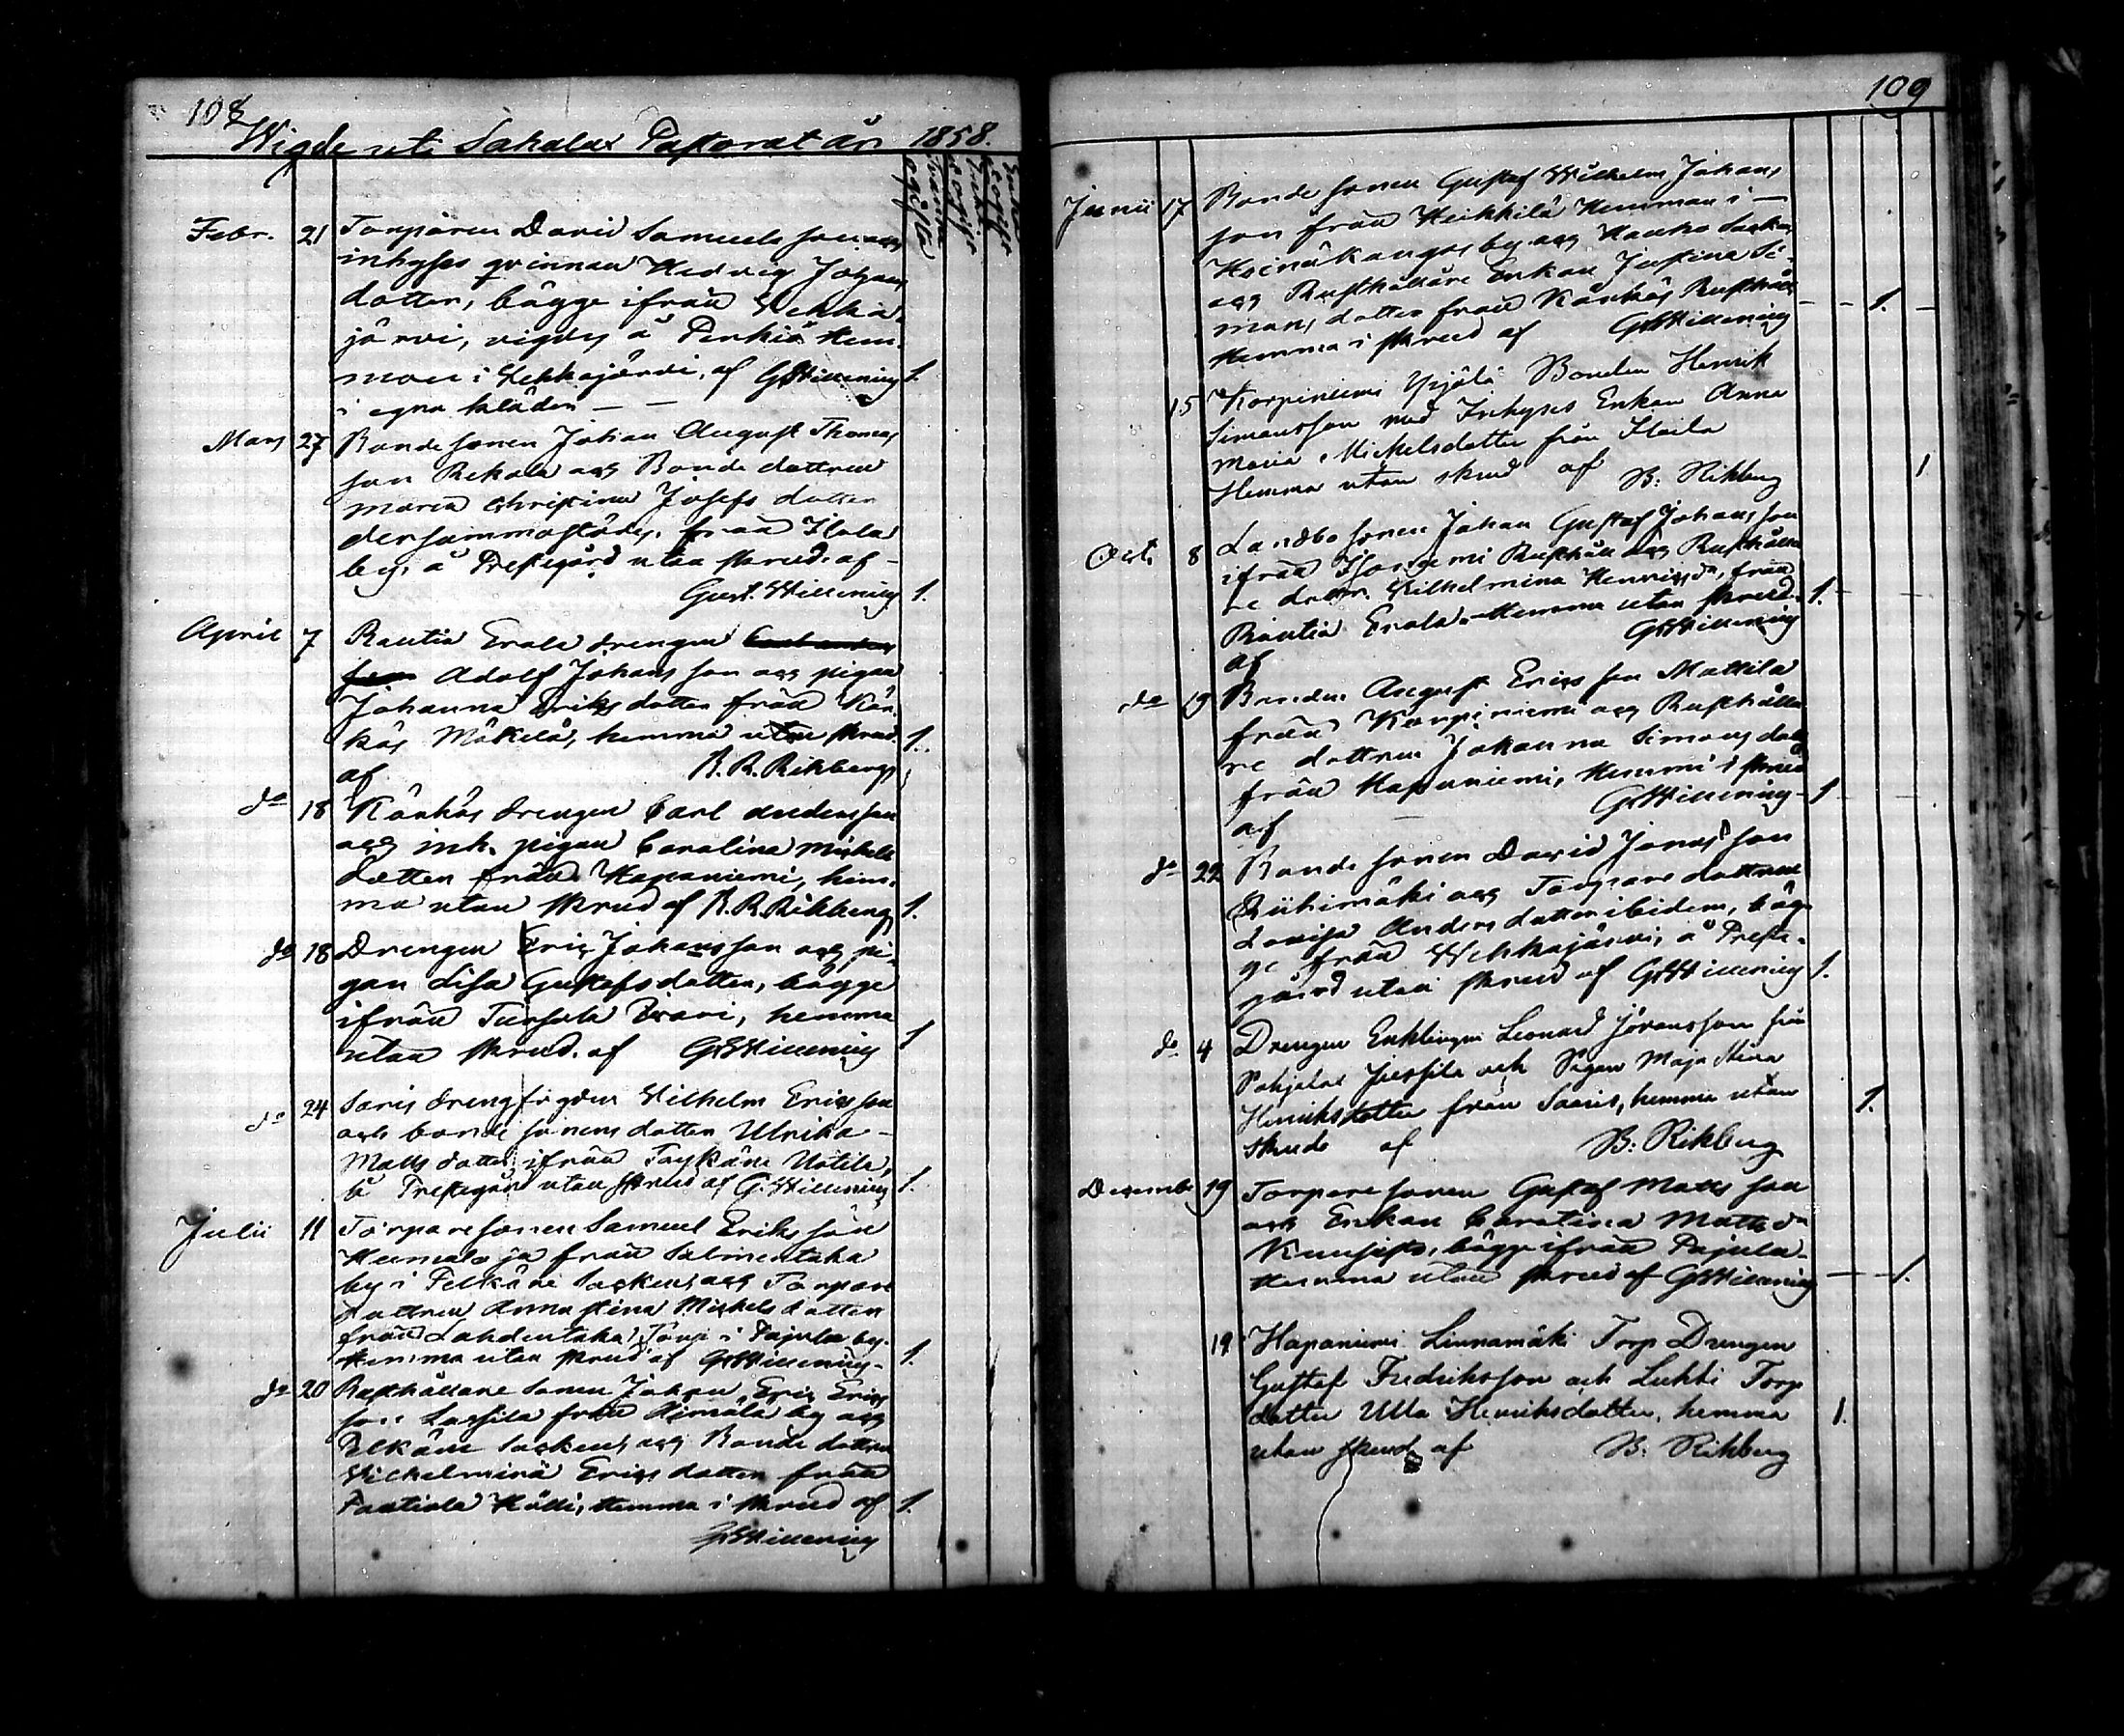 108
Wigde uti Sahalax Pastorat År 1858.
Febr. 21 Torparen David Samuelsson och
inhyses qvinnan Hedvig Johans
dotter, bägge ifrån Vehka-
järvi, vigdes å Penkiä Hem-
man i Vehkajärvi, af GWillenius 1.
i egna kläder — —
Mars 27 Bondesonen Johan August Thomas
son Rekola och Bondedottren
Maria Christina Josefs dotter
dersammastädes, från Ilola
by, å Prestgård utan skrud. af —
Gust. Willenius 1.
April 7 Rautia Erola drengen
Adolf Johans son och pigan
Johanna Eriks dotter från Kär-
käs Mäkelä, hemma utan skrud. 1.
af B. R. Rikberg
do 18 Kärkäs drengen Carl Andersson
och inh. pigan Carolina Michels
dotter från Haponiemi, hem-
ma utan skrud af B. R. Rikberg 1.
do 18 Drengen Eric Johansson och pi-
gan Lisa Gustafsdotter, bägge
ifrån Tursola Prari, hemma
utan skrud. af GWillenius 1
do 24 Saris dreng fogden Wilhelm Ericsson
och bonde sonens dotter Ulrika —
Matts dotter ifrån Uotila,
å Prestgård utan skrud af G. Willenius 1.
Julii 11 Torparesonen Samuel Eriks son
från Salmentaka
by i Pelkäne Socken, och Torpare
dottren Anna Stina Michels dotter
från Lahdentaka Torp i Pajula by.
Hemma utan skrud af GWillenius - 1.
do 20 Rusthållare Sonen Johan Eric Erics
son Lassila från by och
Pelkäne Socken, och Bonde dottren
Wilhelmina Erics dotter från
Pautiala Hölli, Hemma i skrud af 1.
GWillenius
109
Junii 17 Bonde sonen Gustaf Wilhelm Johans
son från Heikkilä Hemman i —
by och Hauho Socken
och Rusthållare Enkan Justina Si-
mons dotter från Kärkäs Rusthåll - - 1. -
Hemma i skrud af GWillenius
15 Korpiniemi Yrjölä Bonden Henrik
Simonsson med Inhyses Enkan Anna
Maria Michelsdotter från Iloila
Hemma utan skrud af B: Rikberg 1
Oct. 8 Landbo sonen Johan Gustaf Johansson
ifrån Rusthåll och Rusthålla
re dottr. Wilhelmina Henricsdr, från
Rautia Erola. Hemma utan skrud. 1. - -
af GWillenius
do 19 Bonden August Erics son Mattila
från Korpiniemi och Rusthålla
re dottren Johanna Simons dotter
från Haponiemi, Hemma i skrud
af GWillenius - 1 - -
do 22 Bonde sonen David Jonas son
Riihimäki och Torpare dottren
Lovisa Anders dotter ibidem, bäg-
ge från Vehkajärvi, å Prest-
gård utan skrud af GWillenius 1.
do 4 Drengen Enklingen Leonard Jöransson från
Pohjalax Jussila och Pigan Maja Stina
Henriksdotter från Saaris, hemma utan 1.
skrud af B: Rikberg
December 19 Torpare sonen Gustaf Matts son
och Enkan Carolina Mattsdr
Kuusisto, bägge ifrån Pajula —
Hemma utan skrud af GWillenius — — 1.
19 Haponiemi Linnamäki Torp Drengen
Gustaf Fredriksson och Luhti Torp
dotter Ulla Henriksdotter, hemma 1.
utan skrud af B: Rikberg